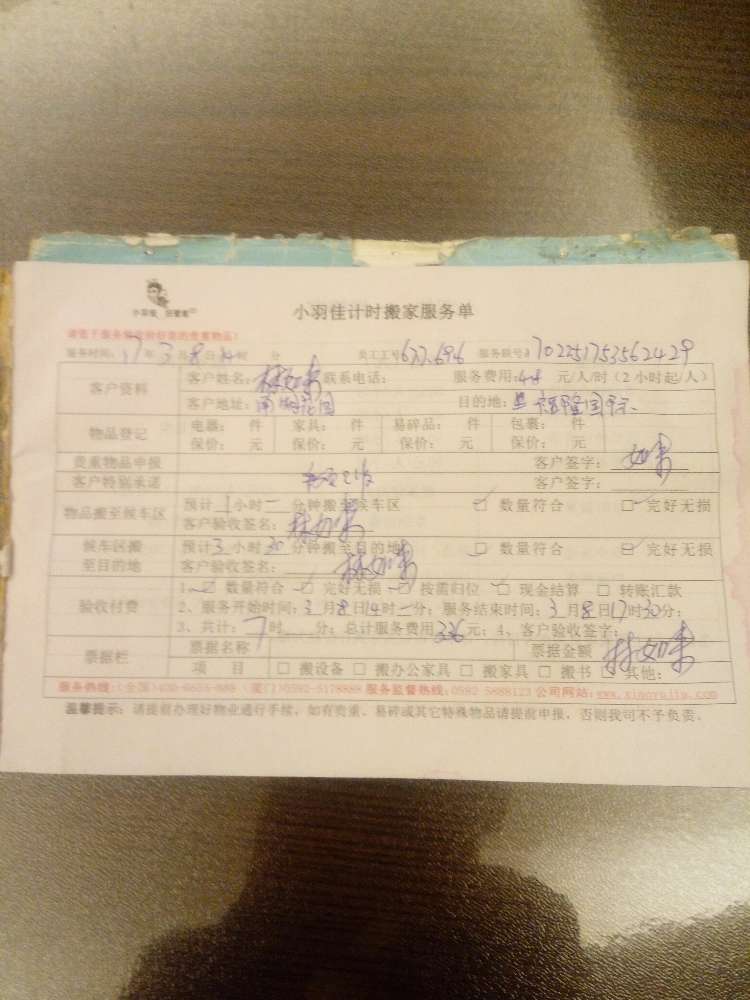 小羽佳计时搬家服务单
服务时间：17年3月8日14时 分 员工工号677.696 服务联号
客户资料 客户姓名：林如来 联系电话： 服务费用：48 元/人/时（2小时起/人）
客户地址： 目的地：
物品登记 电器： 件 家具： 件 易碎品： 件 包裹： 件
保价： 元 保价： 元 保价： 元 保价： 元
贵重物品申报 客户签字：如来
客户特别承诺 客户签字：
物品搬至候车区 预计1小时 分钟搬至候车区 数量符合 完好无损
客户验收签名：林如来
候车区搬至目的地 预计3小时30分钟搬至目的地 数量符合 完好无损
客户验收签名：林如来
验收付费 1、数量符合 完好无损 按需归位 现金结算 转账汇款
2、服务开始时间：3月8日14时 分；服务结束时间：3月8日17时30分；
3、共计：7时 分；总计服务费用336元；4、客户验收签字：林如来
票据栏 票据名称 票据金额
项 目 搬设备 搬办公家具 搬家具 搬书 其他：
服务热线：（全国） （厦门）0592-5178888 服务监督热线：0592-5888123 公司网站：www.xiaoyujia.com
温馨提示：请提前办理好物业通行手续，如有贵重、易碎或其它特殊物品请提前申报，否则我司不予负责。